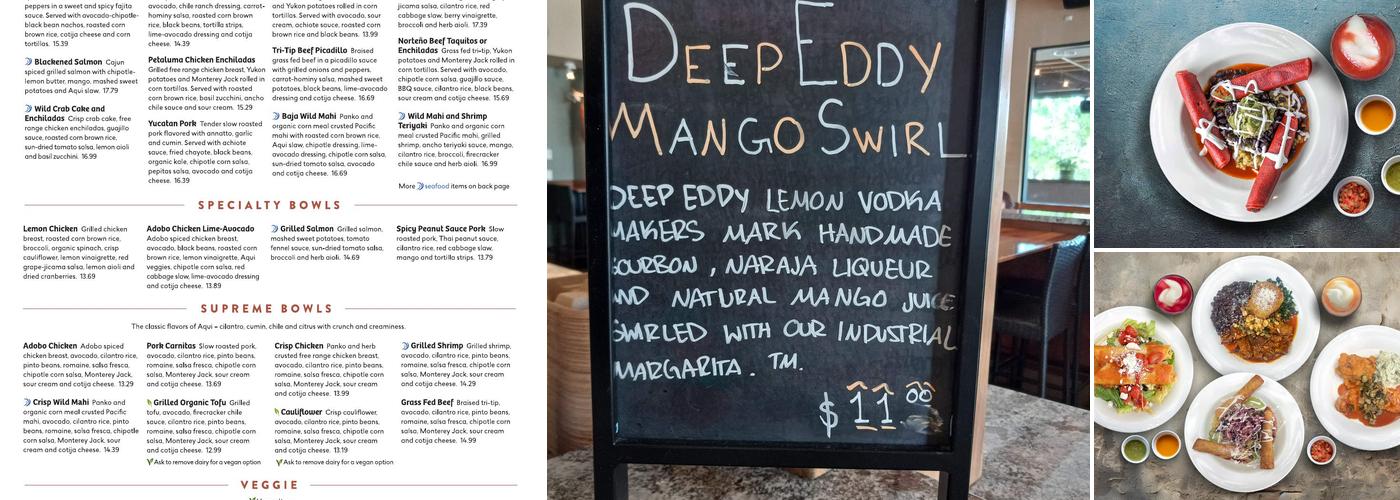 a sweet and spicy fajita
sauce. Served with avocado-chipotle-
black bean nachos, roasted corn
brown rice, cotija cheese and corn
tortillas. 15.39
Blackened Salmon Cajun
spiced grilled salmon with chipotle-
lemon butter, mango, mashed sweet
potatoes and Aqui slaw. 17.79
Wild Crab Cake and
Enchiladas Crisp crab cake, free
range chicken enchiladas, guajillo
sauce, roasted corn brown rice,
sun-dried tomato salsa, lemon aioli
and basil zucchini. 16.99
avocado, chile ranch dressing, carrot-
hominy salsa, roasted corn brown
rice, black beans, tortilla strips,
lime-avocado dressing and cotija
cheese. 14.39
Petaluma Chicken Enchiladas
Grilled free range chicken breast, Yukon
potatoes and Monterey Jack rolled in
corn tortillas. Served with roasted
corn brown rice, basil zucchini, ancho
chile sauce and sour cream. 15.29
Yucatan Pork Tender slow roasted
pork flavored with annatto, garlic
and cumin. Served with achiote
sauce, fried chayote, black beans,
organic kale, chipotle corn salsa,
pepitas salsa, avocado and cotija
cheese. 16.39
and Yukon potatoes rolled in corn
tortillas. Served with avocado, sour
cream, achiote sauce, roasted corn
brown rice and black beans. 13.99
Tri-Tip Beef Picadillo Braised
grass fed beef in a picadillo sauce
with grilled onions and peppers,
carrot-hominy salsa, mashed sweet
potatoes, black beans, lime-avocado
dressing and cotija cheese. 16.69
Baja Wild Mahi Panko and
organic corn meal crusted Pacific
mahi with roasted corn brown rice,
Aqui slaw, chipotle dressing, lime-
avocado dressing, chipotle corn salsa,
sun-dried tomato salsa, avocado
and cotija cheese. 16.69
jicama salsa, cilantro rice, red
cabbage slaw, berry vinaigrette,
broccoli and herb aioli. 17.39
Norteño Beef Taquitos or
Enchiladas Grass fed tri-tip, Yukon
potatoes and Monterey Jack rolled in
corn tortillas. Served with avocado,
cilantro rice, guajillo sauce,
BBQ sauce, cilantro rice, black beans,
sour cream and cotija cheese. 15.69
Wild Mahi and Shrimp
Teriyaki Panko and organic corn
meal crusted Pacific mahi, grilled
shrimp, ancho teriyaki sauce, mango,
cilantro rice, broccoli, firecracker
chile sauce and herb aioli. 16.99
More seafood items on back page
SPECIALTY BOWLS
Lemon Chicken Grilled chicken
breast, roasted corn brown rice,
broccoli, organic spinach, crisp
cauliflower, lemon vinaigrette, red
grape-jicama salsa, lemon aioli and
dried cranberries. 13.69
Adobo Chicken Lime-Avocado
Adobo spiced chicken breast,
avocado, black beans, roasted corn
brown rice, lemon vinaigrette, Aqui
veggies, chipotle corn salsa, red
cabbage slaw, lime-avocado dressing
and cotija cheese. 13.89
Grilled Salmon Grilled salmon,
mashed sweet potatoes, tomato
fennel sauce, sun-dried tomato salsa,
broccoli and herb aioli. 14.69
Spicy Peanut Sauce Pork Slow
roasted pork, Thai peanut sauce,
cilantro rice, red cabbage slaw,
mango and tortilla strips. 13.79
SUPREME BOWLS
The classic flavors of Aqui – cilantro, cumin, chile and citrus with crunch and creaminess.
Adobo Chicken Adobo spiced
chicken breast, avocado, cilantro rice,
pinto beans, romaine, salsa fresca,
chipotle corn salsa, Monterey Jack,
sour cream and cotija cheese. 13.29
Crisp Wild Mahi Panko and
organic corn meal crusted Pacific
mahi, avocado, cilantro rice, pinto
beans, romaine, salsa fresca, chipotle
corn salsa, Monterey Jack, sour
cream and cotija cheese. 14.39
Pork Carnitas Slow roasted pork,
avocado, cilantro rice, pinto beans,
romaine, salsa fresca, chipotle corn
salsa, Monterey Jack, sour cream
and cotija cheese. 13.69
Grilled Organic Tofu Grilled
tofu, avocado, firecracker chile
sauce, cilantro rice, pinto beans,
romaine, salsa fresca, chipotle corn
salsa, Monterey Jack, sour cream
and cotija cheese. 12.99
Ask to remove dairy for a vegan option
Crisp Chicken Panko and herb
crusted free range chicken breast,
avocado, cilantro rice, pinto beans,
romaine, salsa fresca, chipotle corn
salsa, Monterey Jack, sour cream
and cotija cheese. 13.99
Cauliflower Crisp cauliflower,
avocado, cilantro rice, pinto beans,
romaine, salsa fresca, chipotle corn
salsa, Monterey Jack, sour cream
and cotija cheese. 13.19
Ask to remove dairy for a vegan option
Grilled Shrimp Grilled shrimp,
avocado, cilantro rice, pinto beans,
romaine, salsa fresca, chipotle corn
salsa, Monterey Jack, sour cream
and cotija cheese. 14.29
Grass Fed Beef Braised tri-tip,
avocado, cilantro rice, pinto beans,
romaine, salsa fresca, chipotle corn
salsa, Monterey Jack, sour cream
and cotija cheese. 14.99
VEGGIE
DEEP EDDY
MANGO SWIRL
DEEP EDDY LEMON VODKA
MAKERS MARK HANDMADE
BOURBON, NARAJA LIQUEUR
AND NATURAL MANGO JUICE
SWIRLED WITH OUR INDUSTRIAL
MARGARITA. TM.
$11.00